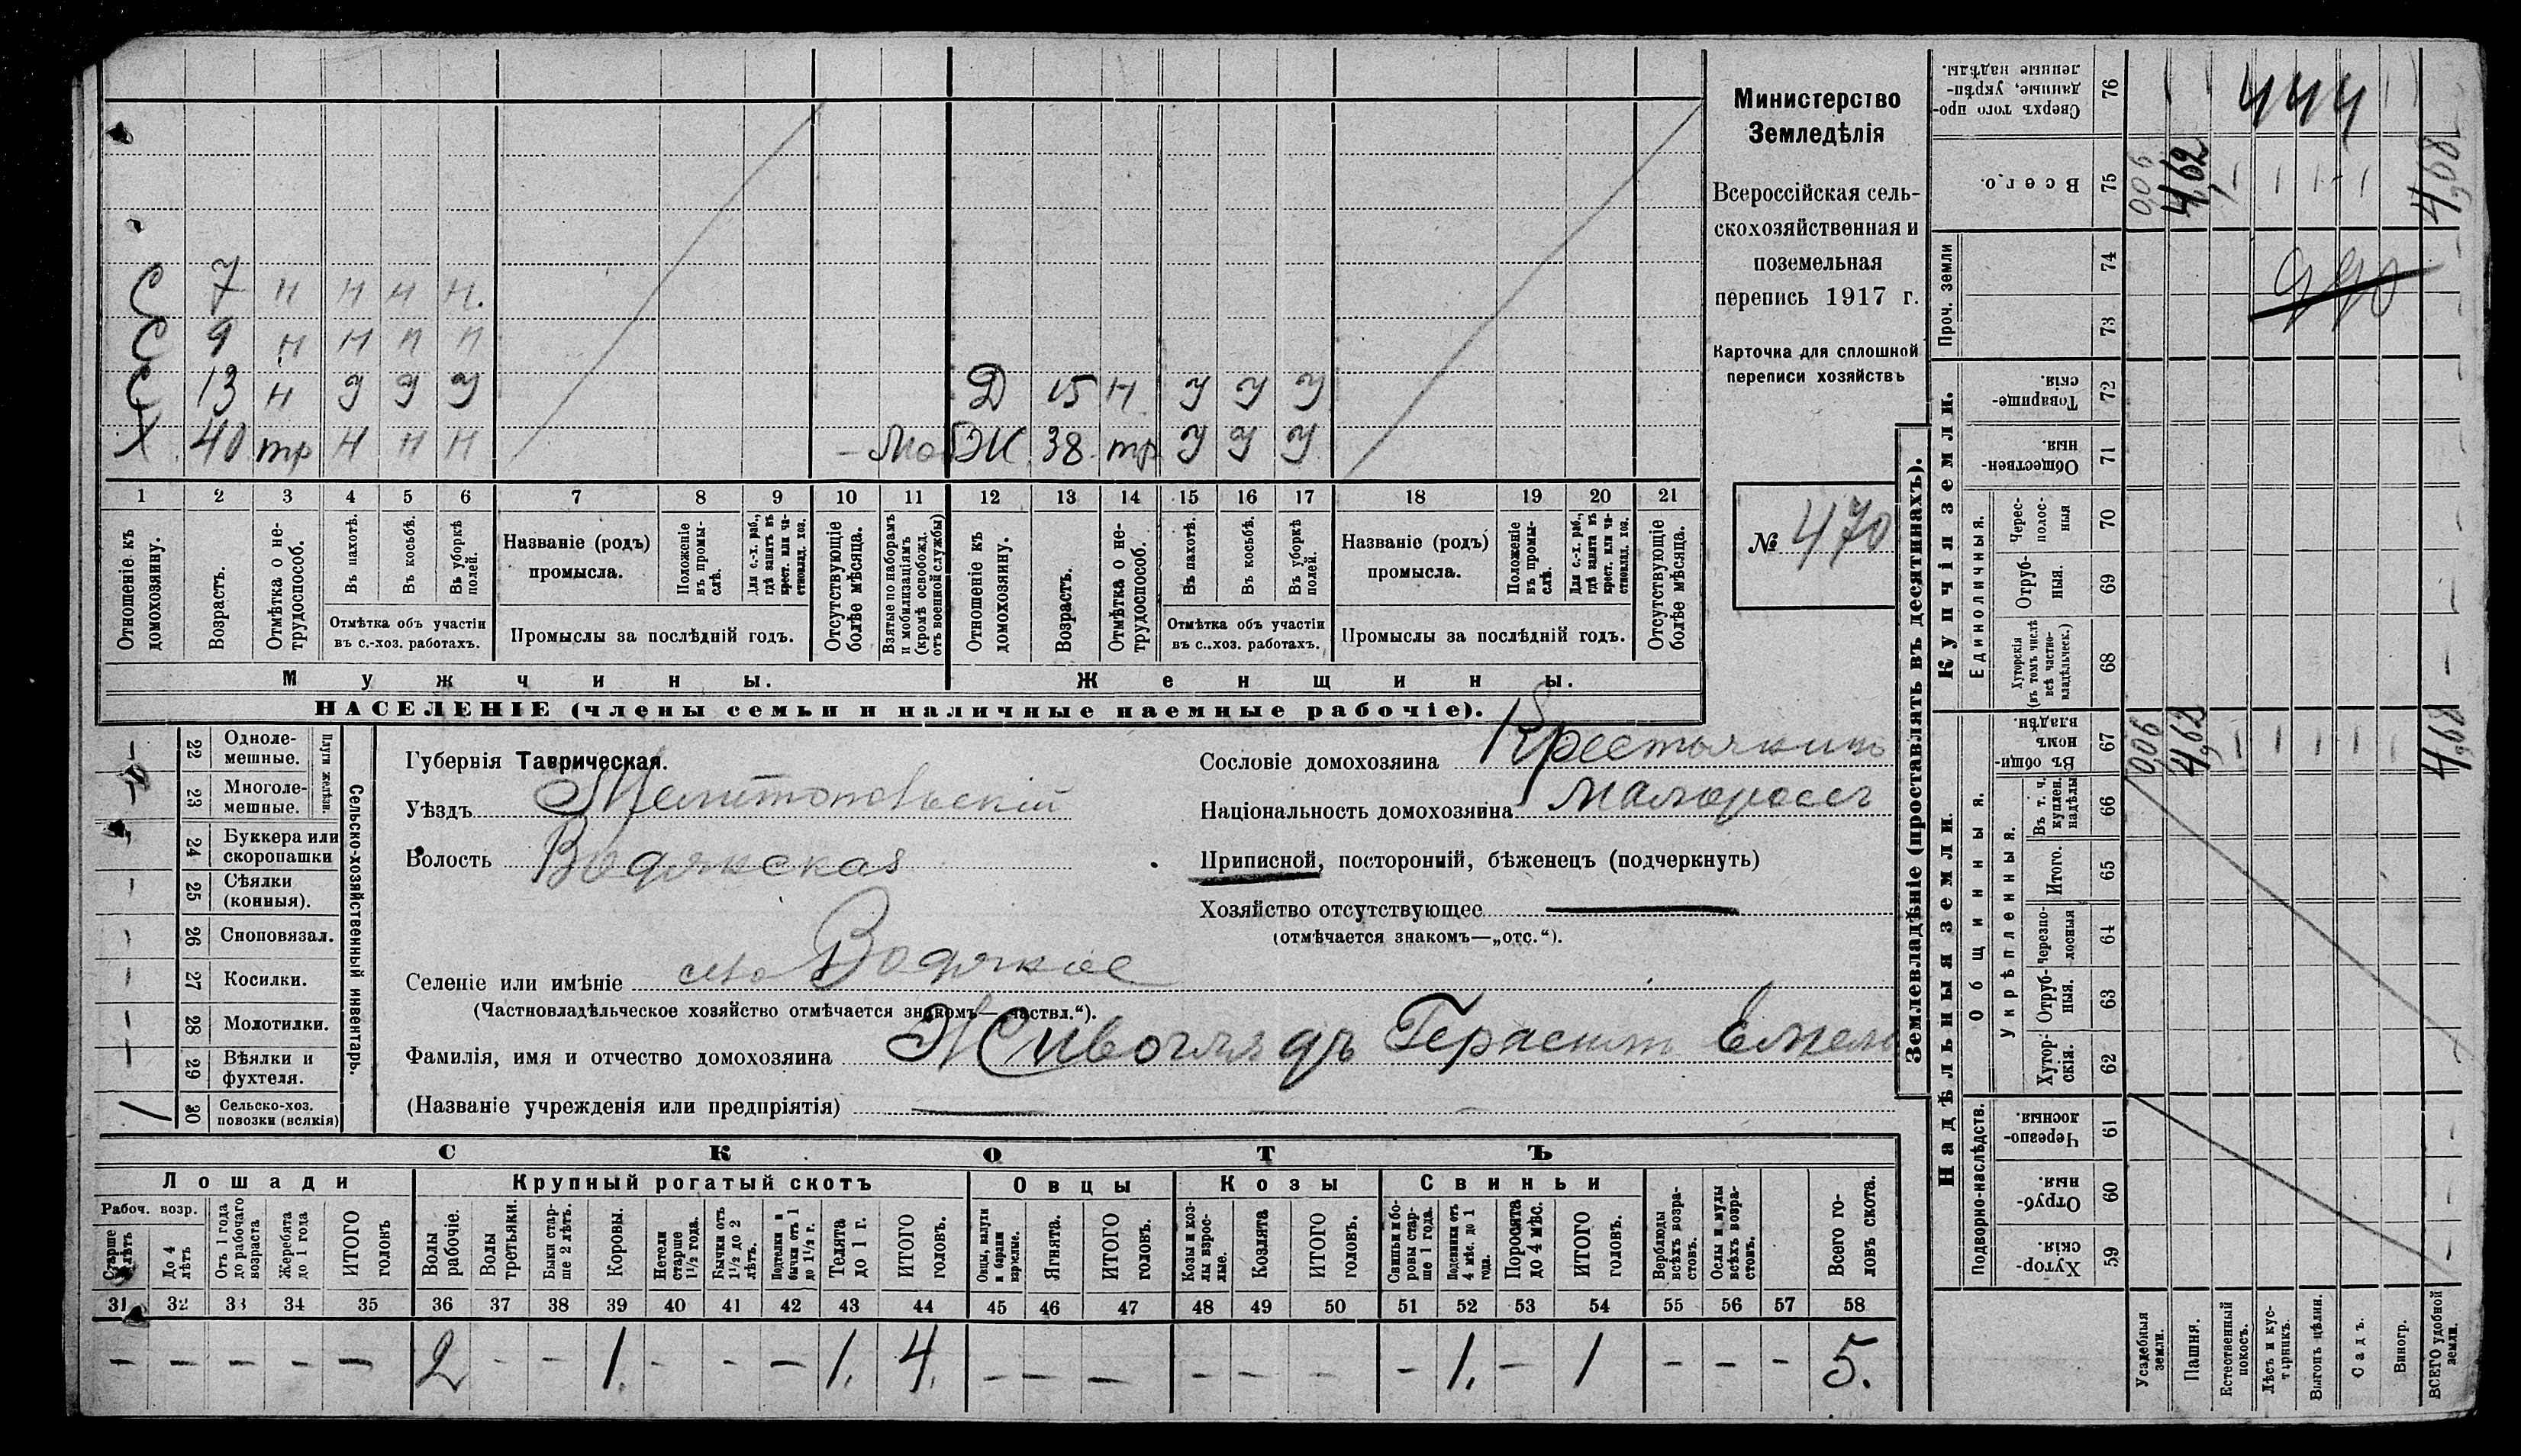 С 7 н н н н.
С 9 н н н н
С 13 н у у у Д 15 н у у у
Х 40 тр н н н — Моб Ж 38 тр у у у
1 2 3 4 5 6 7 8 9 10 11 12 13 14 15 16 17 18 19 20 21
Отношеніе къ домохозяину.
Возрастъ.
Отмѣтка о не-трудоспособ.
Въ пахотѣ.
Въ косьбѣ.
Въ уборкѣ полей.
Отмѣтка объ участіи
въ с.-хоз. работахъ.
Названіе (родъ)
промысла.
Положеніе въ промы-слѣ.
Для с.-х. раб., гдѣ занятъ въ крест. или ча-стновлад. хоз.
Промыслы за послѣдній годъ.
Отсутствующіе болѣе мѣсяца.
Взятые по наборамъ и мобилизаціямъ (кромѣ освобожд. отъ военной службы)
Отношеніе къ домохозяину.
Возрастъ.
Отмѣтка о не-трудоспособ.
Въ пахотѣ.
Въ косьбѣ.
Въ уборкѣ полей.
Отмѣтка объ участіи
въ с.-хоз. работахъ.
Названіе (родъ)
промысла.
Положеніе въ промы-слѣ.
Для с.-х. раб., гдѣ занята въ крест. или ча-стновлад. хоз.
Промыслы за послѣдній годъ.
Отсутствующіе болѣе мѣсяца.
Мужчины. Женщины.
НАСЕЛЕНІЕ (члены семьи и наличные наемные рабочіе).
Министерство
Земледѣлія
Всероссійская сель-
скохозяйственная и
поземельная
перепись 1917 г.
Карточка для сплошной
переписи хозяйствъ
№ 470
Сельско-хозяйственный инвентарь.
22 Одноле-мешные.
23 Многоле-мешные.
24 Буккера или скоропашки
25 Сѣялки (конныя).
26 Сноповязал.
27 Косилки.
28 Молотилки.
29 Вѣялки и фухтеля.
30 Сельско-хоз. повозки (всякія)
Губернія Таврическая.
Уѣздъ Мелитопольскій
Волость Водянская
Селеніе или имѣніе село Водяное
(Частновладѣльческое хозяйство отмѣчается знакомъ—„частвл.“).
Фамилія, имя и отчество домохозяина Живоглядъ Герасим Емел
(Названіе учрежденія или предпріятія)
Сословіе домохозяина Крестьянинъ
Національность домохозяина Малороссъ
Приписной, посторонній, бѣженецъ (подчеркнуть)
Хозяйство отсутствующее
(отмѣчается знакомъ—„отс.“).
СКОТЪ
Лошади Крупный рогатый скотъ Овцы Козы Свиньи
Рабоч. возр.
Старше 4 лѣтъ
До 4 лѣтъ
Отъ 1 года до рабочаго возраста
Жеребята до 1 года
ИТОГО головъ
Волы рабочіе.
Волы третьяки.
Быки стар-ше 2 лѣтъ.
Коровы.
Нетели старше 1½ года.
Бычки отъ 1½ до 2 лѣтъ.
Подтелки и бычки отъ 1 до 1½ г.
Телята до 1 г.
ИТОГО головъ.
Овцы, валухи и бараны взрослые.
Ягнята.
ИТОГО головъ.
Козы и коз-лы взрос-лые.
Козлята
ИТОГО головъ.
Свиньи и бо-ровы стар-ше 1 года.
Подсвинки отъ 4 мѣс. до 1 года.
Поросята до 4 мѣс.
ИТОГО головъ.
Верблюды всѣхъ возра-стовъ.
Ослы и мулы всѣхъ возра-стовъ.
Всего го-ловъ скота.
31 32 33 34 35 36 37 38 39 40 41 42 43 44 45 46 47 48 49 50 51 52 53 54 55 56 57 58
— — — — — 2 - - 1. - - — 1. 4. — — — — — — - 1. — 1 — — — 5.
Землевладѣніе (проставлять въ десятинахъ).
Надѣльныя земли. Купчія земли.
Сверхъ того про-данные, укрѣп-ленные надѣлы. 76 444
Всего. 75 006 4,62 468
Проч. земли 74 990
73
Товарище-скія. 72
Обществен-ныя. 71
Единоличныя.
Черес-полос-ныя 70
Отруб-ныя. 69
Хуторскія (въ томъ числѣ всѣ частно-владѣльческ.) 68
Общинныя.
Въ общи-номъ владѣн. 67 0,06 4,62 4,68
Укрѣпленныя.
Въ т. ч. куплен. надѣлы 66
Итого. 65
Черезпо-лосныя 64
Отруб-ныя. 63
Хутор-скія. 62
Подворно-наслѣдств.
Черезпо-лосныя. 61
Отруб-ныя. 60
Хутор-скія. 59
Усадебныя земли.
Пашня.
Естественный покосъ.
Лѣсъ и кус-тарникъ.
Выгонъ цѣлин.
Садъ.
Виногр.
ВСЕГО удобной земли.